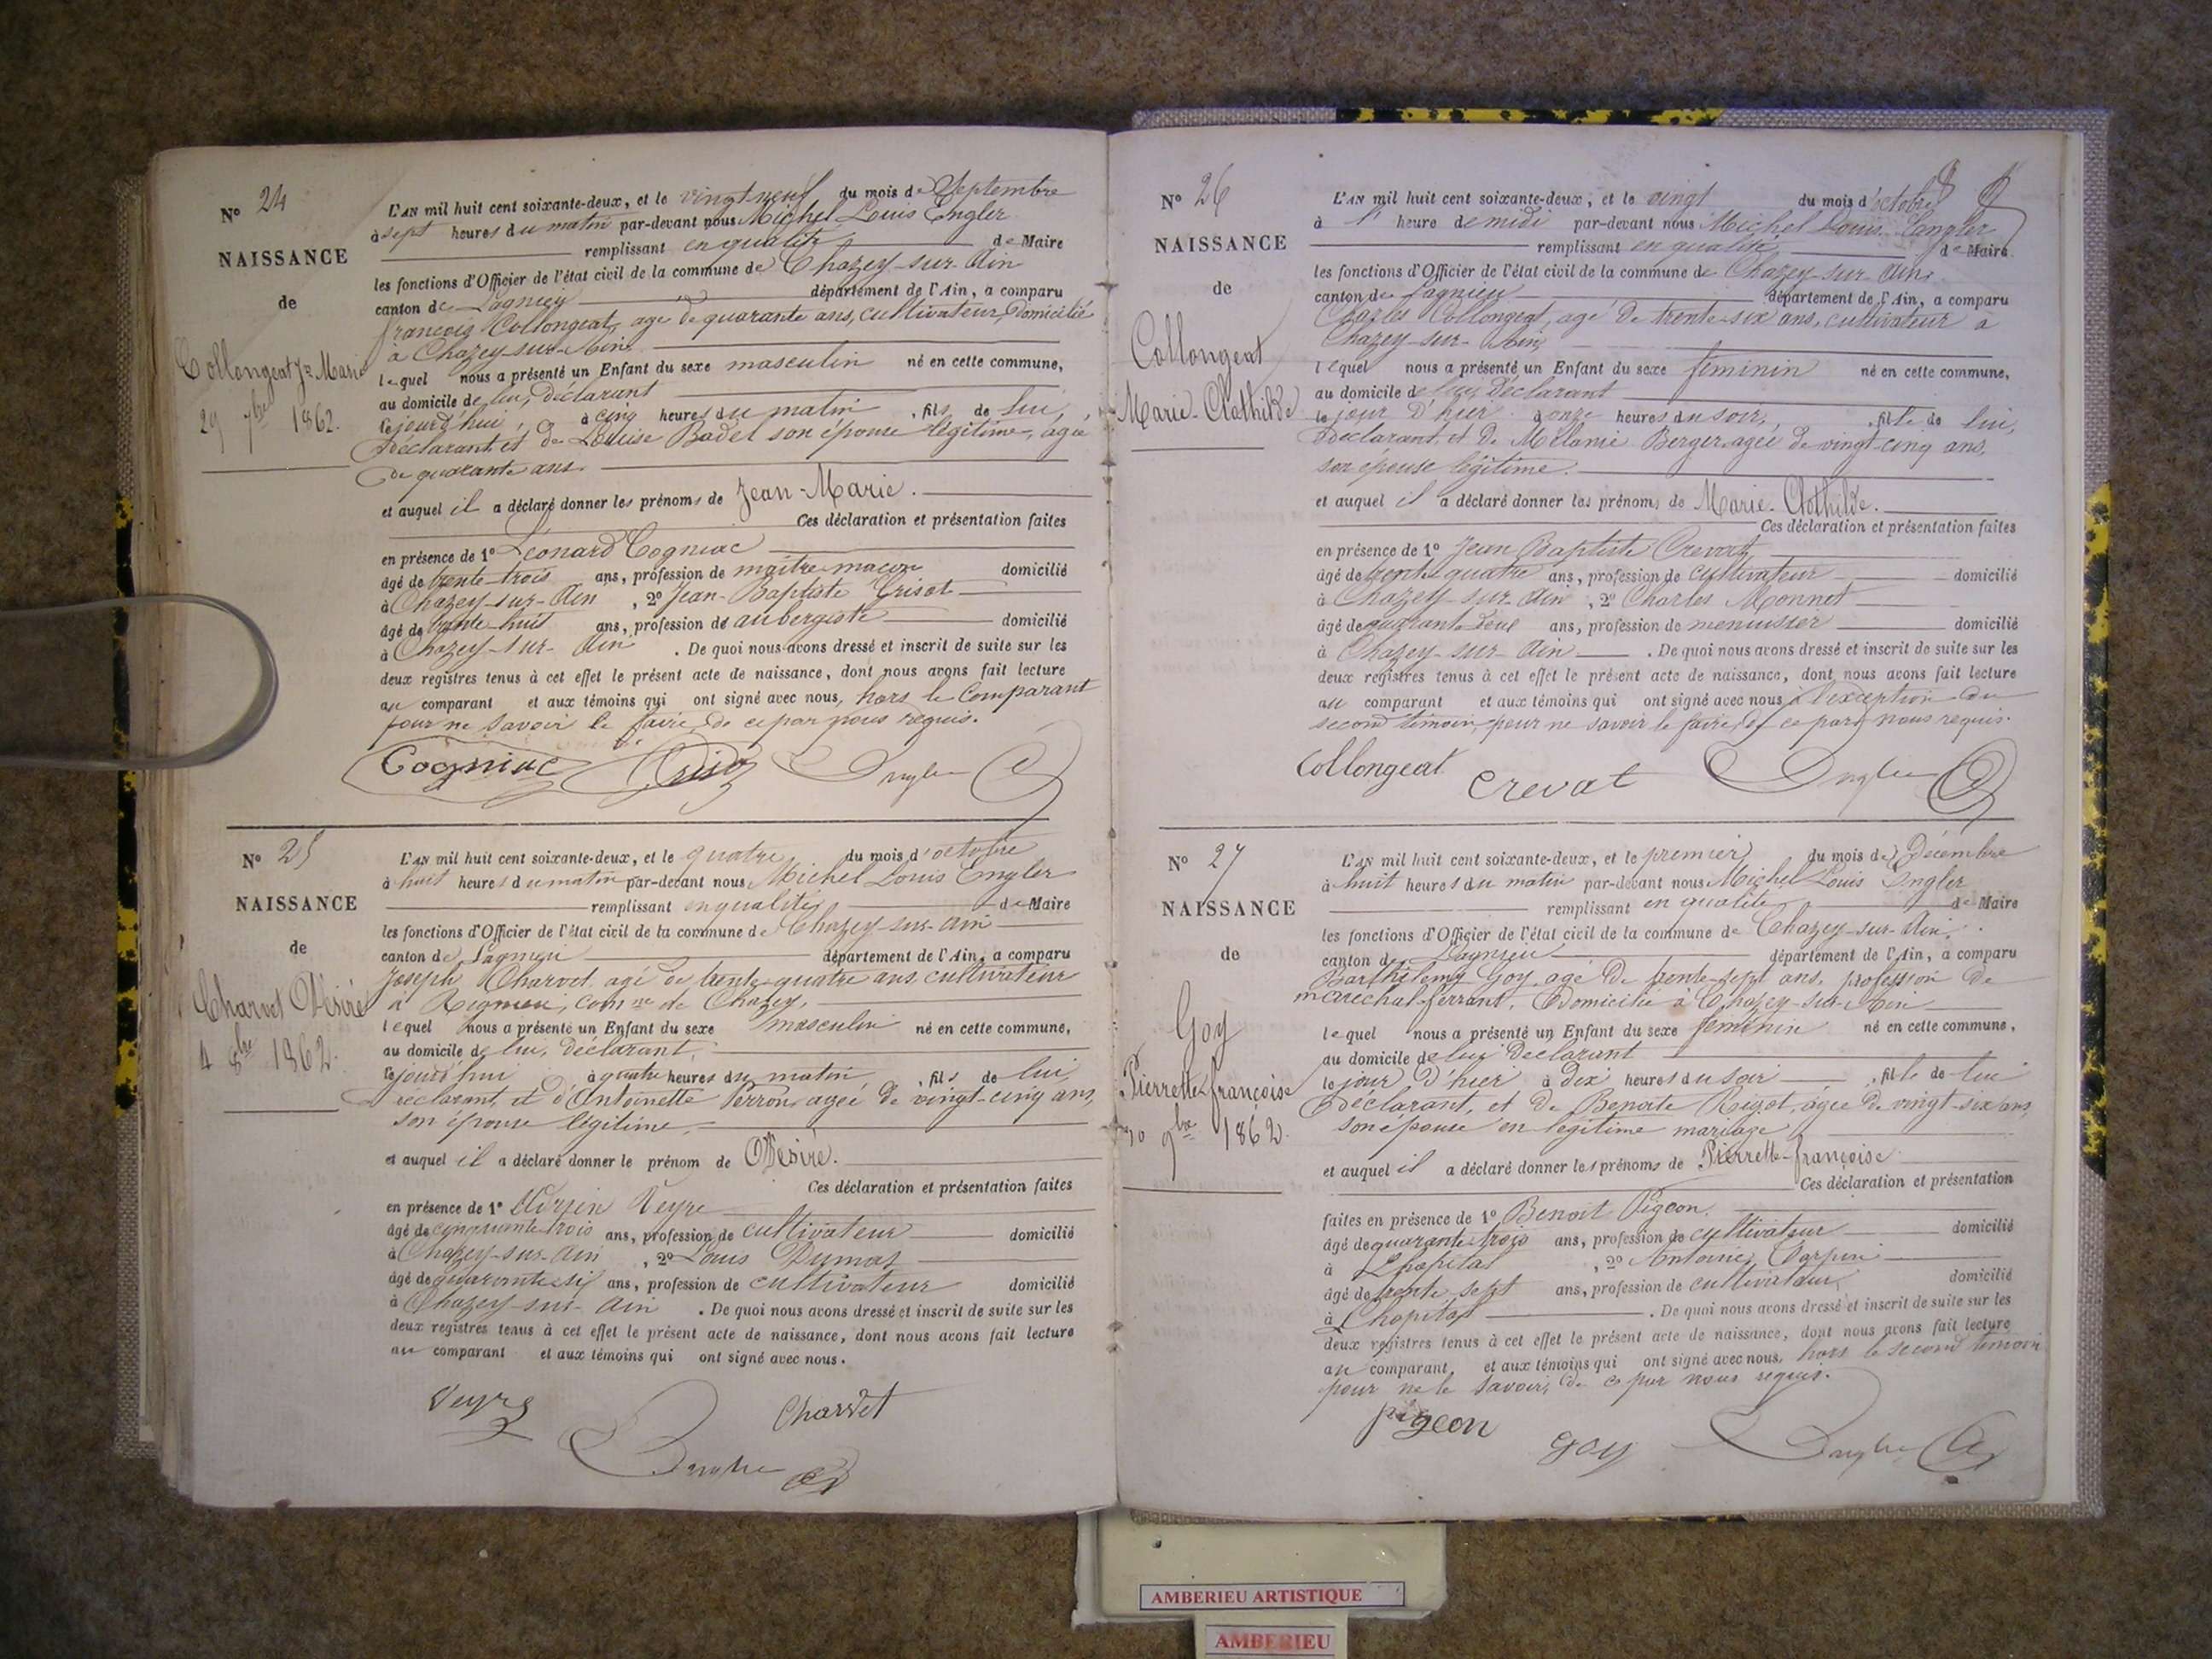 N° 24
NAISSANCE
de
Collongeat Jn Marie
29 7bre 1862.
L'AN mil huit cent soixante-deux, et le vingt neuf du mois de Septembre
à sept heures du matin par-devant nous Michel Louis Engler
remplissant en qualité de Maire
les fonctions d'Officier de l'état civil de la commune de Chazey-sur-Ain
canton de Lagnieu département de l'Ain, a comparu
françois Collongeat, agé de quarante ans, cultivateur, domicilié
à Chazey-sur-Ain
lequel nous a présenté un Enfant du sexe masculin né en cette commune,
au domicile de lui, déclarant
cejourd'hui, à cinq heures du matin, fils de lui,
déclarant et de Louise Badel son épouse légitime, agée
de quarante ans.
et auquel il a déclaré donner les prénoms de Jean-Marie.
Ces déclaration et présentation faites
en présence de 1° Léonard Cogniac
âgé de trente-trois ans, profession de maître-maçon domicilié
à Chazey-sur-Ain, 2° Jean-Baptiste Grisot
âgé de trente-huit ans, profession de aubergiste domicilié
à Chazey-sur-Ain. De quoi nous avons dressé et inscrit de suite sur les
deux registres tenus à cet effet le présent acte de naissance, dont nous avons fait lecture
au comparant et aux témoins qui ont signé avec nous, hors le Comparant
pour ne savoir le faire, de ce par nous requis.
Cogniac Engler
N° 25
NAISSANCE
de
Charvet Désiré
4 8bre 1862.
L'AN mil huit cent soixante-deux, et le quatre du mois d'octobre
à huit heures du matin par-devant nous Michel Louis Engler
remplissant en qualité de Maire
les fonctions d'Officier de l'état civil de la commune de Chazey-sur-Ain
canton de Lagnieu département de l'Ain, a comparu
Joseph Charvet agé de trente-quatre ans, cultivateur
à Rignieu, comne de Chazey,
lequel nous a présenté un Enfant du sexe masculin né en cette commune,
au domicile de lui, déclarant,
cejourd'hui à quatre heures du matin, fils de lui
déclarant, et d'Antoinette Perron, agée de vingt-cinq ans,
son épouse légitime,
et auquel il a déclaré donner le prénom de Désiré.
Ces déclaration et présentation faites
en présence de 1° Veyre
âgé de cinquante-trois ans, profession de cultivateur domicilié
à Chazey-sur-Ain, 2° Louis Dumas
âgé de quarante-six ans, profession de cultivateur domicilié
à Chazey-sur-Ain. De quoi nous avons dressé et inscrit de suite sur les
deux registres tenus à cet effet le présent acte de naissance, dont nous avons fait lecture
au comparant et aux témoins qui ont signé avec nous.
Veyre Charvet
Engler
N° 26
NAISSANCE
de
Collongeat
Marie-Clothilde
L'AN mil huit cent soixante-deux, et le vingt du mois d'octobre
à 1 heure de midi par-devant nous Michel Louis Engler
remplissant en qualité de Maire
les fonctions d'Officier de l'état civil de la commune de Chazey-sur-Ain
canton de Lagnieu département de l'Ain, a comparu
Charles Collongeat, agé de trente-six ans, cultivateur à
Chazey-sur-Ain,
lequel nous a présenté un Enfant du sexe féminin né en cette commune,
au domicile de lui, Déclarant
le jour d'hier à onze heures du soir, fille de lui,
Déclarant, et de Mélanie Berger agée de vingt-cinq ans,
son épouse légitime.
et auquel il a déclaré donner les prénoms de Marie-Clothilde.
Ces déclaration et présentation faites
en présence de 1° Jean Baptiste Crevat
âgé de trente quatre ans, profession de cultivateur domicilié
à Chazey-sur-Ain, 2° Charles Monnet
âgé de quarante-deux ans, profession de menuisier domicilié
à Chazey-sur-Ain. De quoi nous avons dressé et inscrit de suite sur les
deux registres tenus à cet effet le présent acte de naissance, dont nous avons fait lecture
au comparant et aux témoins qui ont signé avec nous à l'exception du
second témoin, pour ne savoir le faire, de ce par nous requis.
Collongeat crevat Engler
N° 27
NAISSANCE
de
Goy
Pierrette-françoise
30 9bre 1862.
L'AN mil huit cent soixante-deux, et le premier du mois de Décembre
à huit heures du matin par-devant nous Michel Louis Engler
remplissant en qualité de Maire
les fonctions d'Officier de l'état civil de la commune de Chazey-sur-Ain,
canton de Lagnieu département de l'Ain, a comparu
Barthélemy Goy, agé de trente-sept ans, profession de
maréchal-ferrant, Domicilié à Chazey-sur-Ain
lequel nous a présenté un Enfant du sexe féminin né en cette commune,
au domicile de lui Déclarant
le jour d'hier à dix heures du soir, fille de lui
Déclarant, et de Benoite Rigot, agée de vingt-six ans,
son épouse en légitime mariage
et auquel il a déclaré donner les prénoms de Pierrette-françoise
Ces déclaration et présentation
faites en présence de 1° Benoit Pigeon.
âgé de quarante-trois ans, profession de cultivateur domicilié
à L'hopital, 2° Antoine
âgé de trente-sept ans, profession de cultivateur domicilié
à L'hopital. De quoi nous avons dressé et inscrit de suite sur les
deux registres tenus à cet effet le présent acte de naissance, dont nous avons fait lecture
au comparant, et aux témoins qui ont signé avec nous, hors le second témoin
pour ne le savoir, de ce par nous requis.
pigeon goy Engler
AMBERIEU ARTISTIQUE
AMBERIEU